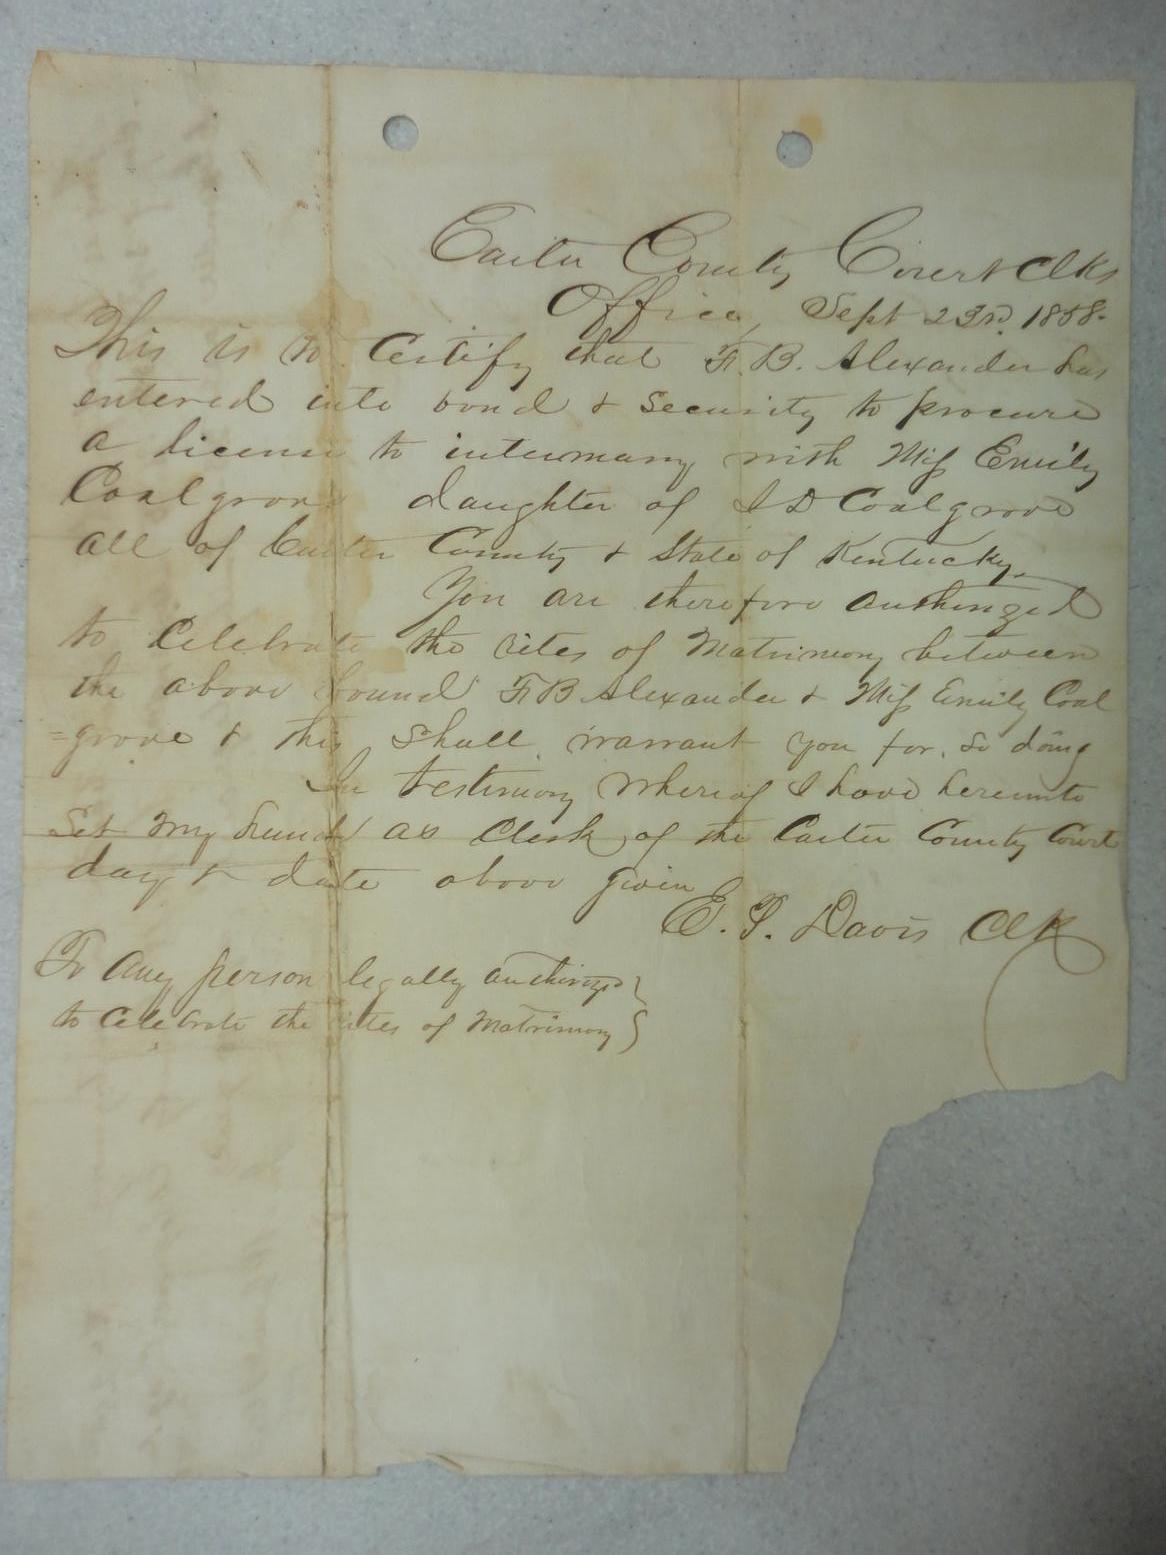 Carter County Court Clks
Office, Sept 23rd, 1858.
This is to Certify that F. B. Alexander has
entered into bond & Security to procure
a license to intermarry with Miss Emily
Coalgrove daughter of I D Coalgrove
all of Carter County & State of Kentucky.
You are therefore authorized
to Celebrate the rites of Matrimony between
the above bound F B Alexander & Miss Emily Coal
=grove & this Shall warrant you for so doing
In testimony whereof I have hereunto
Set my hand as Clerk of the Carter County Court
day & date above given
E. T. Davis Clk
To Any person legally authorized
to Celebrate the rites of Matrimony